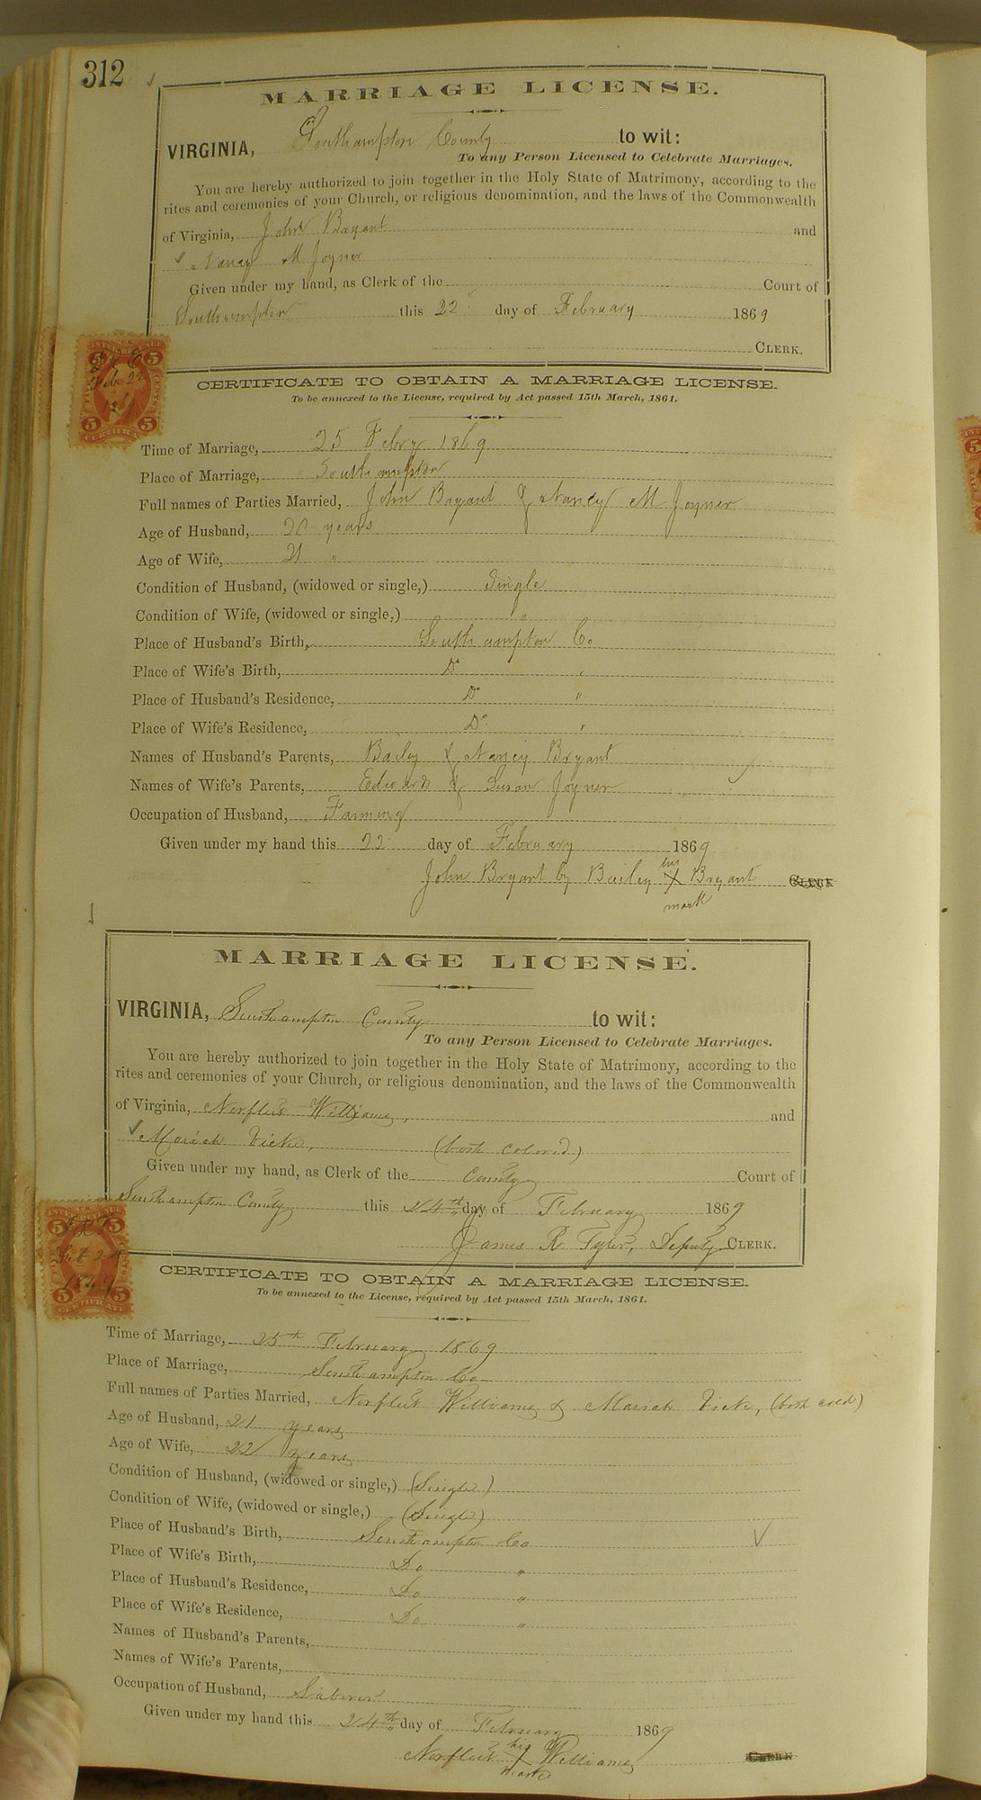 312
MARRIAGE LICENSE.
VIRGINIA, Southampton County to wit:
To any Person Licensed to Celebrate Marriages.
You are hereby authorized to join together in the Holy State of Matrimony, according to the
rites and ceremonies of your Church, or religious denomination, and the laws of the Commonwealth
of Virginia, John Bryant and
Nancy M Joyner
Given under my hand, as Clerk of the Court of
Southampton this 22 day of February 1869
CLERK.
CERTIFICATE TO OBTAIN A MARRIAGE LICENSE.
To be annexed to the License, required by Act passed 15th March, 1861.
Time of Marriage, 25 Febry 1869
Place of Marriage, Southampton
Full names of Parties Married, John Bryant & Nancy M Joyner
Age of Husband, 20 years
Age of Wife, 21 "
Condition of Husband, (widowed or single,) Single
Condition of Wife, (widowed or single,) "
Place of Husband's Birth, Southampton Co
Place of Wife's Birth, Do "
Place of Husband's Residence, Do "
Place of Wife's Residence, Do "
Names of Husband's Parents, Bailey & Nancy Bryant
Names of Wife's Parents, Edward & Susan Joyner
Occupation of Husband, Farming
Given under my hand this 22 day of February 1869
John Bryant by Bailey his X Bryant CLERK
mark
MARRIAGE LICENSE.
VIRGINIA, Southampton County to wit:
To any Person Licensed to Celebrate Marriages.
You are hereby authorized to join together in the Holy State of Matrimony, according to the
rites and ceremonies of your Church, or religious denomination, and the laws of the Commonwealth
of Virginia, Norfleet Williams, and
Mariah Vick, (both colored)
Given under my hand, as Clerk of the County Court of
Southampton County this 24th day of February 1869
James R. Tyler, Deputy CLERK.
CERTIFICATE TO OBTAIN A MARRIAGE LICENSE.
To be annexed to the License, required by Act passed 15th March, 1861.
Time of Marriage, 25th February 1869
Place of Marriage, Southampton Co
Full names of Parties Married, Norfleet Williams & Mariah Vick, (both cold)
Age of Husband, 21 years
Age of Wife, 22 years
Condition of Husband, (widowed or single,) (Single)
Condition of Wife, (widowed or single,) (Single)
Place of Husband's Birth, Southampton Co
Place of Wife's Birth, Do "
Place of Husband's Residence, Do "
Place of Wife's Residence, Do "
Names of Husband's Parents,
Names of Wife's Parents,
Occupation of Husband, Laborer
Given under my hand this 24th day of February 1869
Norfleet his X Williams CLERK
mark